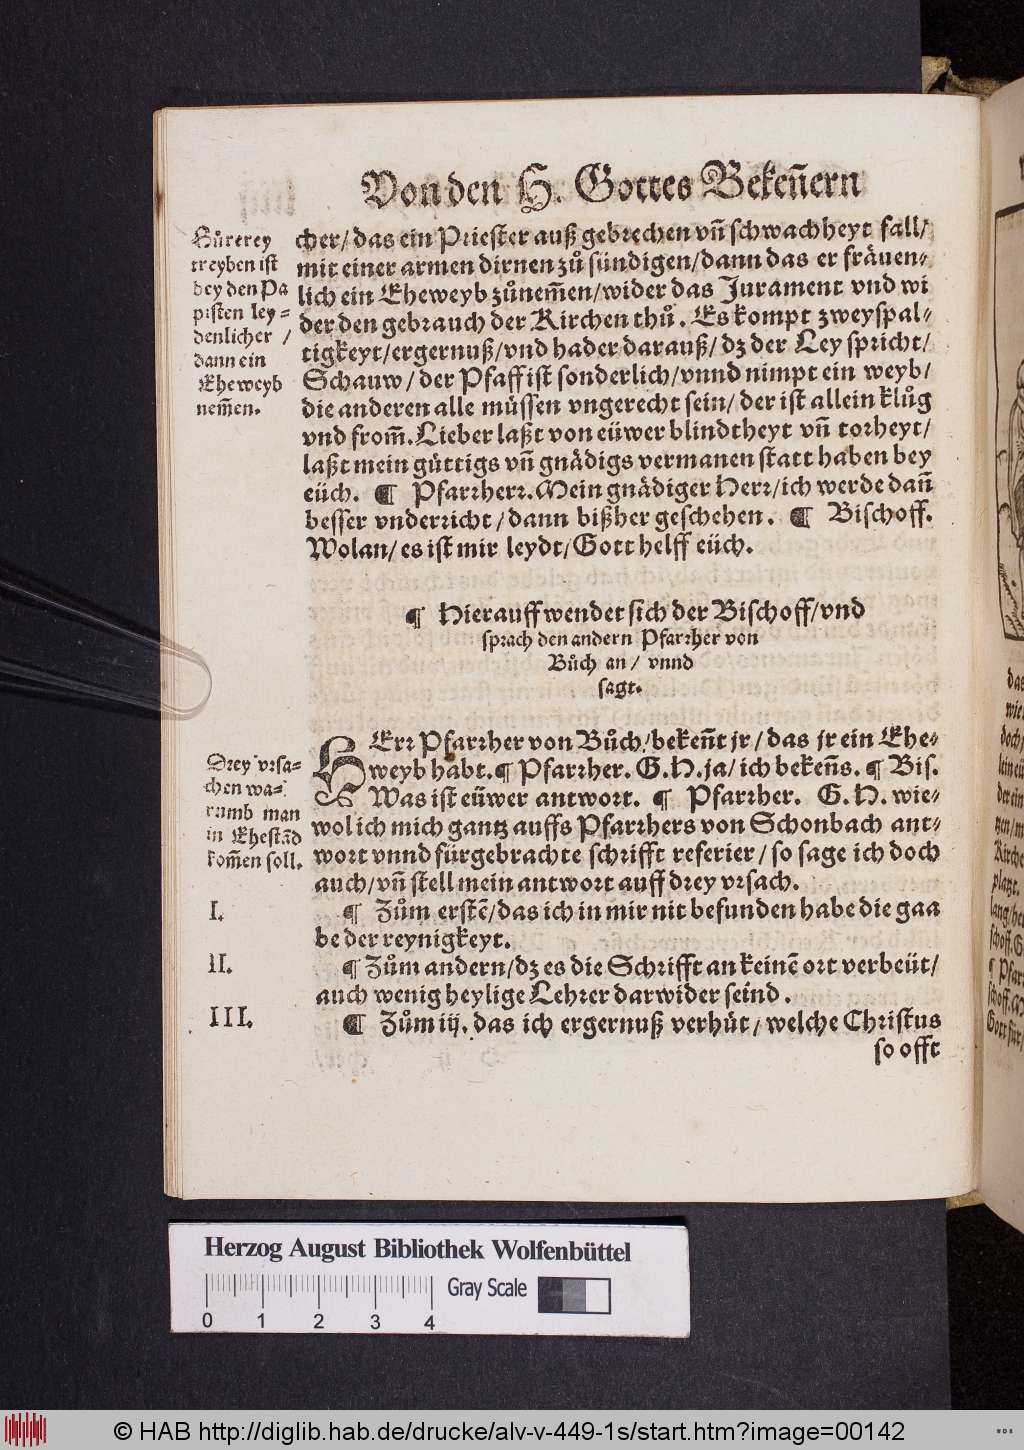 Von den H. Gottes Bekeñern
Hůrerey
treyben ist
bey den Pa
pisten ley=
denlicher /
dann ein
Eheweyb
nem̃en.
cher/ das ein Priester auß gebrechen vñ schwachheyt fall/
mit einer armen dirnen zů sündigen/ dann das er fräuen-
lich ein Eheweyb zůnem̃en/ wider das Jurament vnd wi
der den gebrauch der Kirchen thů. Es kompt zweyspal-
tigkeyt/ ergernuß/ vnd hader darauß/ dz der Ley spricht/
Schauw/ der Pfaff ist sonderlich/ vnnd nimpt ein weyb/
die anderen alle müssen vngerecht sein/ der ist allein klůg
vnd from̃. Lieber laßt von eüwer blindtheyt vñ torheyt/
laßt mein güttigs vñ gnädigs vermanen statt haben bey
eüch. ¶ Pfarrherr. Mein gnädiger Herr/ ich werde dañ
besser vnderricht/ dann bißher geschehen. ¶ Bischoff.
Wolan/ es ist mir leydt/ Gott helff eüch.
¶ Hierauff wendet sich der Bischoff/ vnd
sprach den andern Pfarrher von
Bůch an/ vnnd
sagt.
Drey vrsa-
chen wa-
rumb man
in Ehestãd
kom̃en soll.
HErr Pfarrher von Bůch/ bekeñt jr/ das jr ein Ehe-
weyb habt. ¶ Pfarrher. G. H. ja/ ich bekeñs. ¶ Bis.
Was ist eüwer antwort. ¶ Pfarrher. G. H. wie-
wol ich mich gantz auffs Pfarrhers von Schonbach ant-
wort vnnd fürgebrachte schrifft referier/ so sage ich doch
auch/ vñ stell mein antwort auff drey vrsach.
I.
¶ Zům erstẽ/ das ich in mir nit befunden habe die gaa
be der reynigkeyt.
II.
¶ Zům andern/ dz es die Schrifft an keinẽ ort verbeüt/
auch wenig heylige Lehrer darwider seind.
III.
¶ Zům iij. das ich ergernuß verhüt/ welche Christus
so offt
Herzog August Bibliothek Wolfenbüttel
Gray Scale
0 1 2 3 4
© HAB http://diglib.hab.de/drucke/alv-v-449-1s/start.htm?image=00142